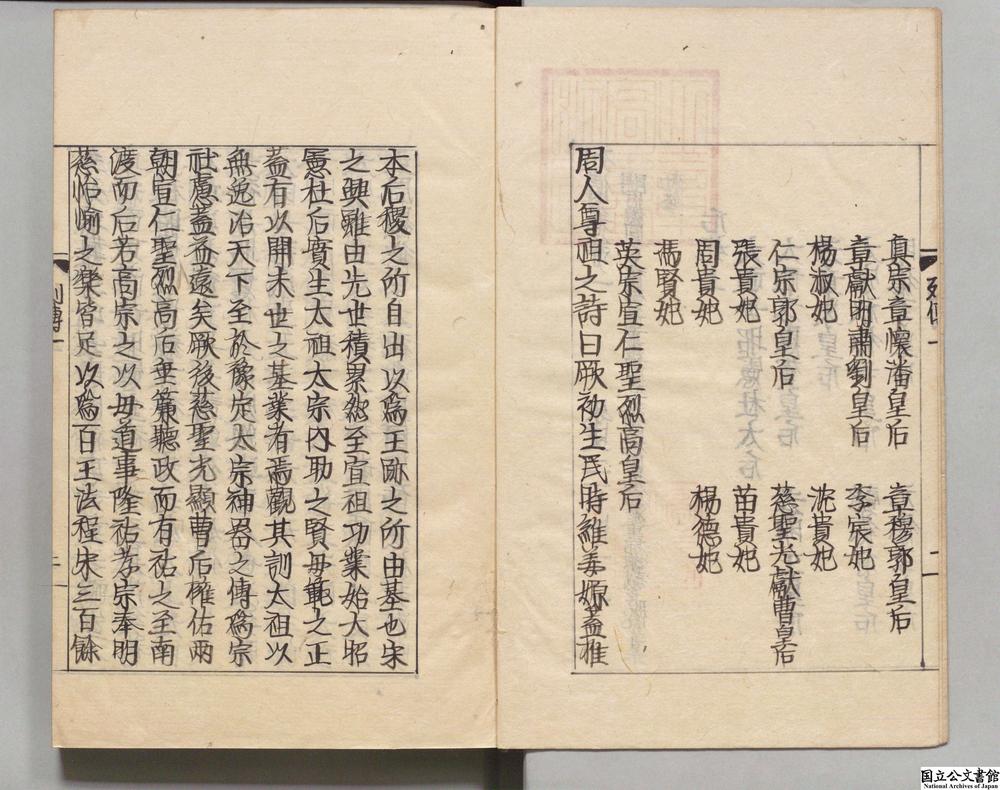 真宗章懷潘皇后　章穆郭皇后
章獻明肅劉皇后　李宸妃
楊淑妃　沈貴妃
仁宗郭皇后　慈聖光獻曹皇后
張貴妃　苗貴妃
周貴妃　楊德妃
馮賢妃
英宗宣仁聖烈高皇后
周人尊祖之詩曰厥初生民時維姜嫄蓋推
本后稷之所自出以爲王跡之所由基也宋
之興雖由先世積累然至宣祖功業始大昭
憲杜后實生太祖太宗內助之賢母範之正
蓋有以開未世之基業者焉觀其訓太祖以
無逸治天下至於豫定太宗神器之傳爲宗
社慮蓋益遠矣厥後慈聖光顯曹后擁佑兩
朝宣仁聖烈高后垂簾聽政而有祐之至南
渡而后若高宗之以母道事隆祐孝宗奉明
慈怡愉之樂皆足以爲百王法程宋三百餘
列傳一
二
国立公文書館
National Archives of Japan